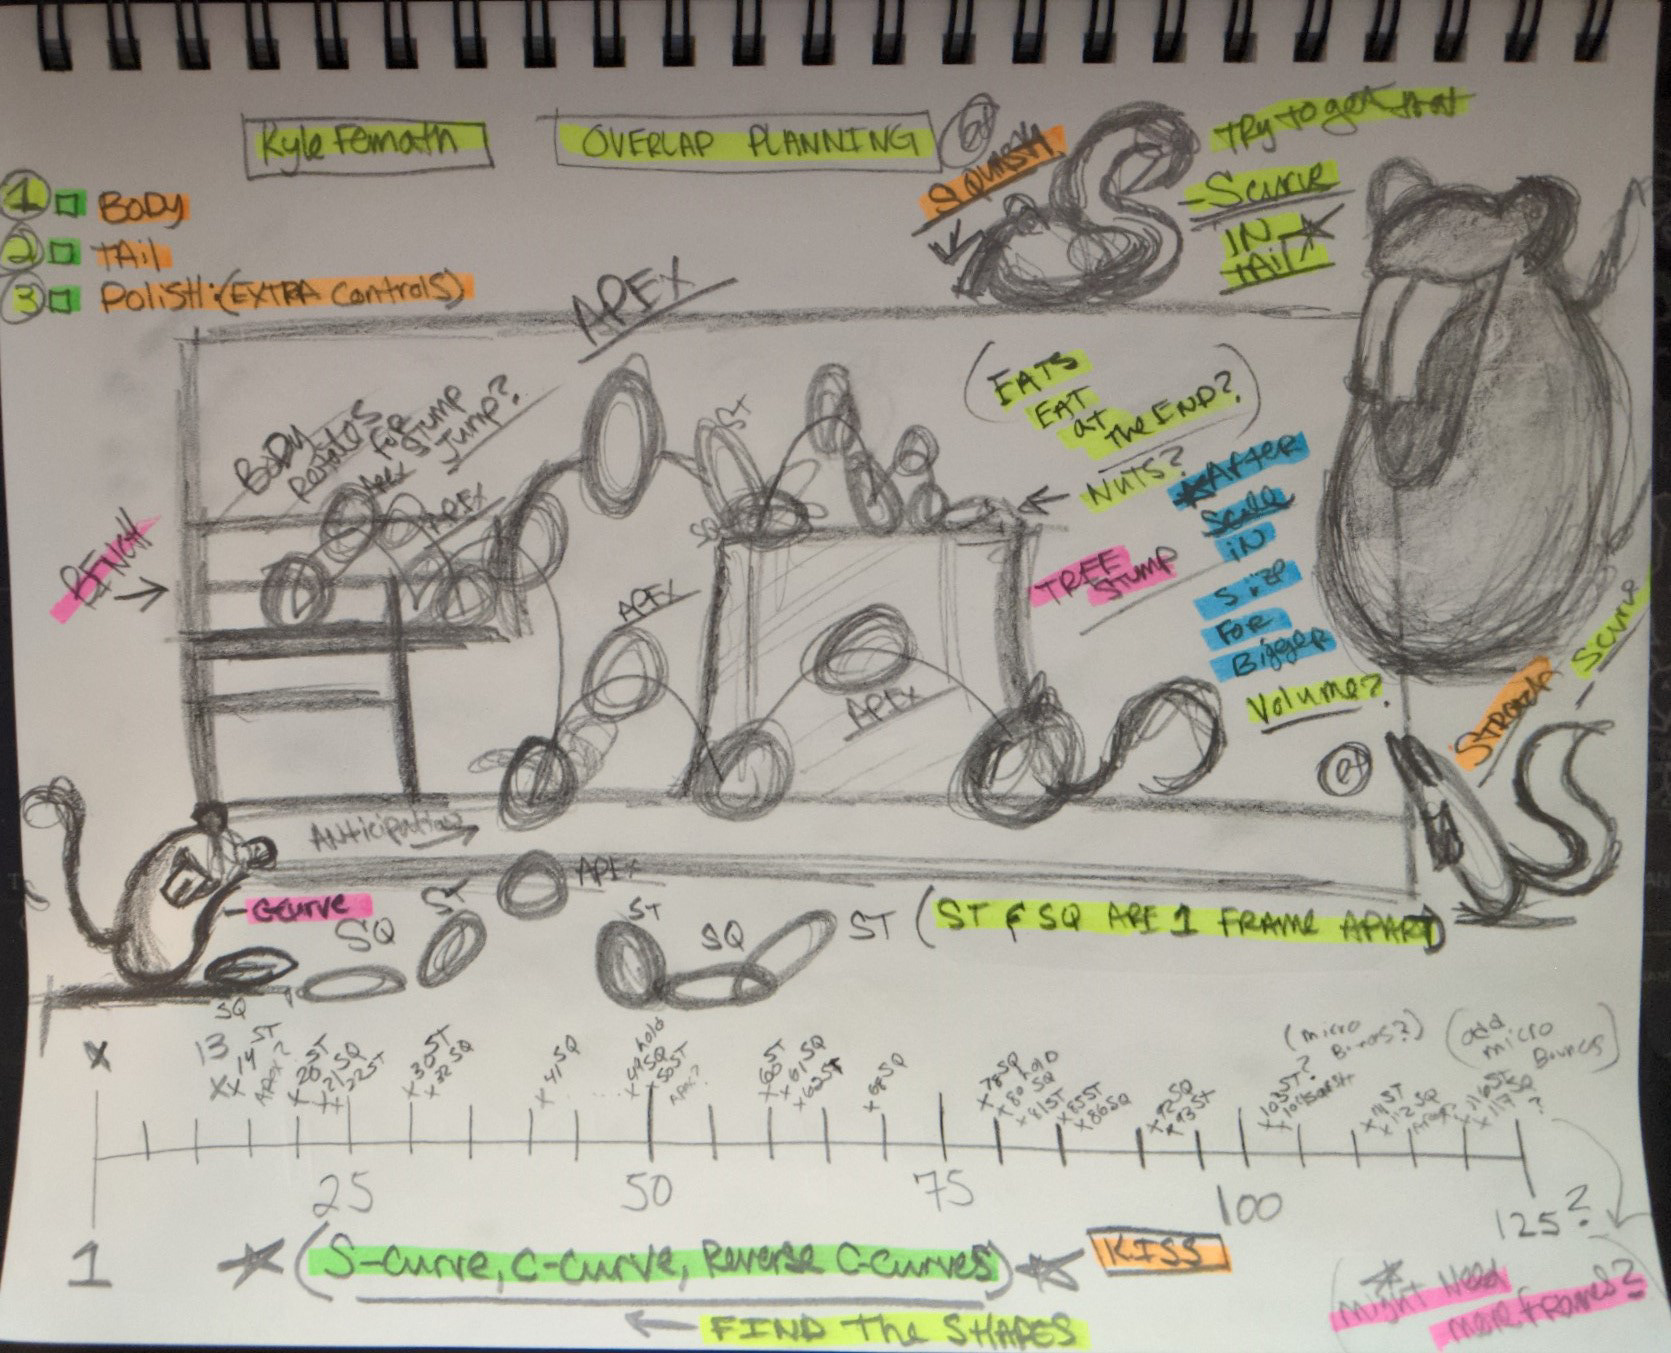 Kyle Femath
OVERLAP PLANNING
1 BODY
2 TAil
3 POLISH: (EXTRA controls)
SQUASH
TRY TO get that
S curve
IN
tAil
APEX
BODY
Rotates
FOR
STUMP
Jump?
Apex
APEX
ST
SQ
(EATS
EAT
at
The END?)
NUTS?
After
Scale
iN
SizE
FOR
Bigger
Volume?
BENCH
TREE
STUMP
APEX
APEX
S curve
Stretch
Anticipation
APEX
C curve
SQ
SQ
ST
ST
SQ
ST
(ST & SQ ARE 1 FRAME APART)
X
13
x 14 ST
APEX?
x 20 ST
x 21 SQ
x 22 ST
x 30 ST
x 32 SQ
x 41 SQ
x 49 SQ hold
x 50 ST
APEX?
x 60 ST
x 61 SQ
x 62 ST
x 68 SQ
x 78 SQ
x 80 SQ HOLD
x 81 ST
x 85 ST
x 86 SQ
x 92 SQ
x 93 ST
x 103 ST?
(micro
Bounces?)
(add
micro
Bounces)
x 111 ST
x 112 SQ
x 116 ST
x 117 SQ
?
1
25
50
75
100
125?
(S-curve, C-curve, Reverse C-curves)
KISS
FIND The SHAPES
(Might Need
more frames?